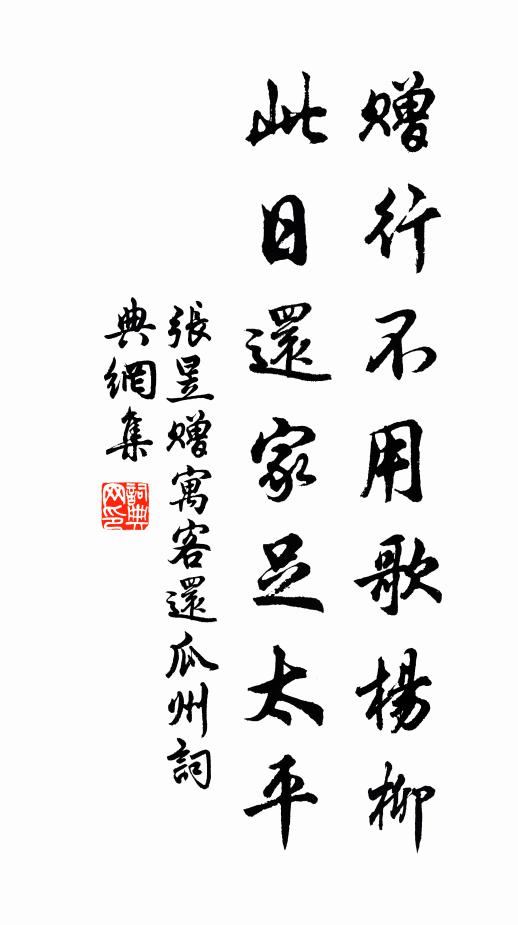 赠行不用歌楊柳
此日還家足太平
張昱赠寓客還瓜州詞
典網集
詞典网印